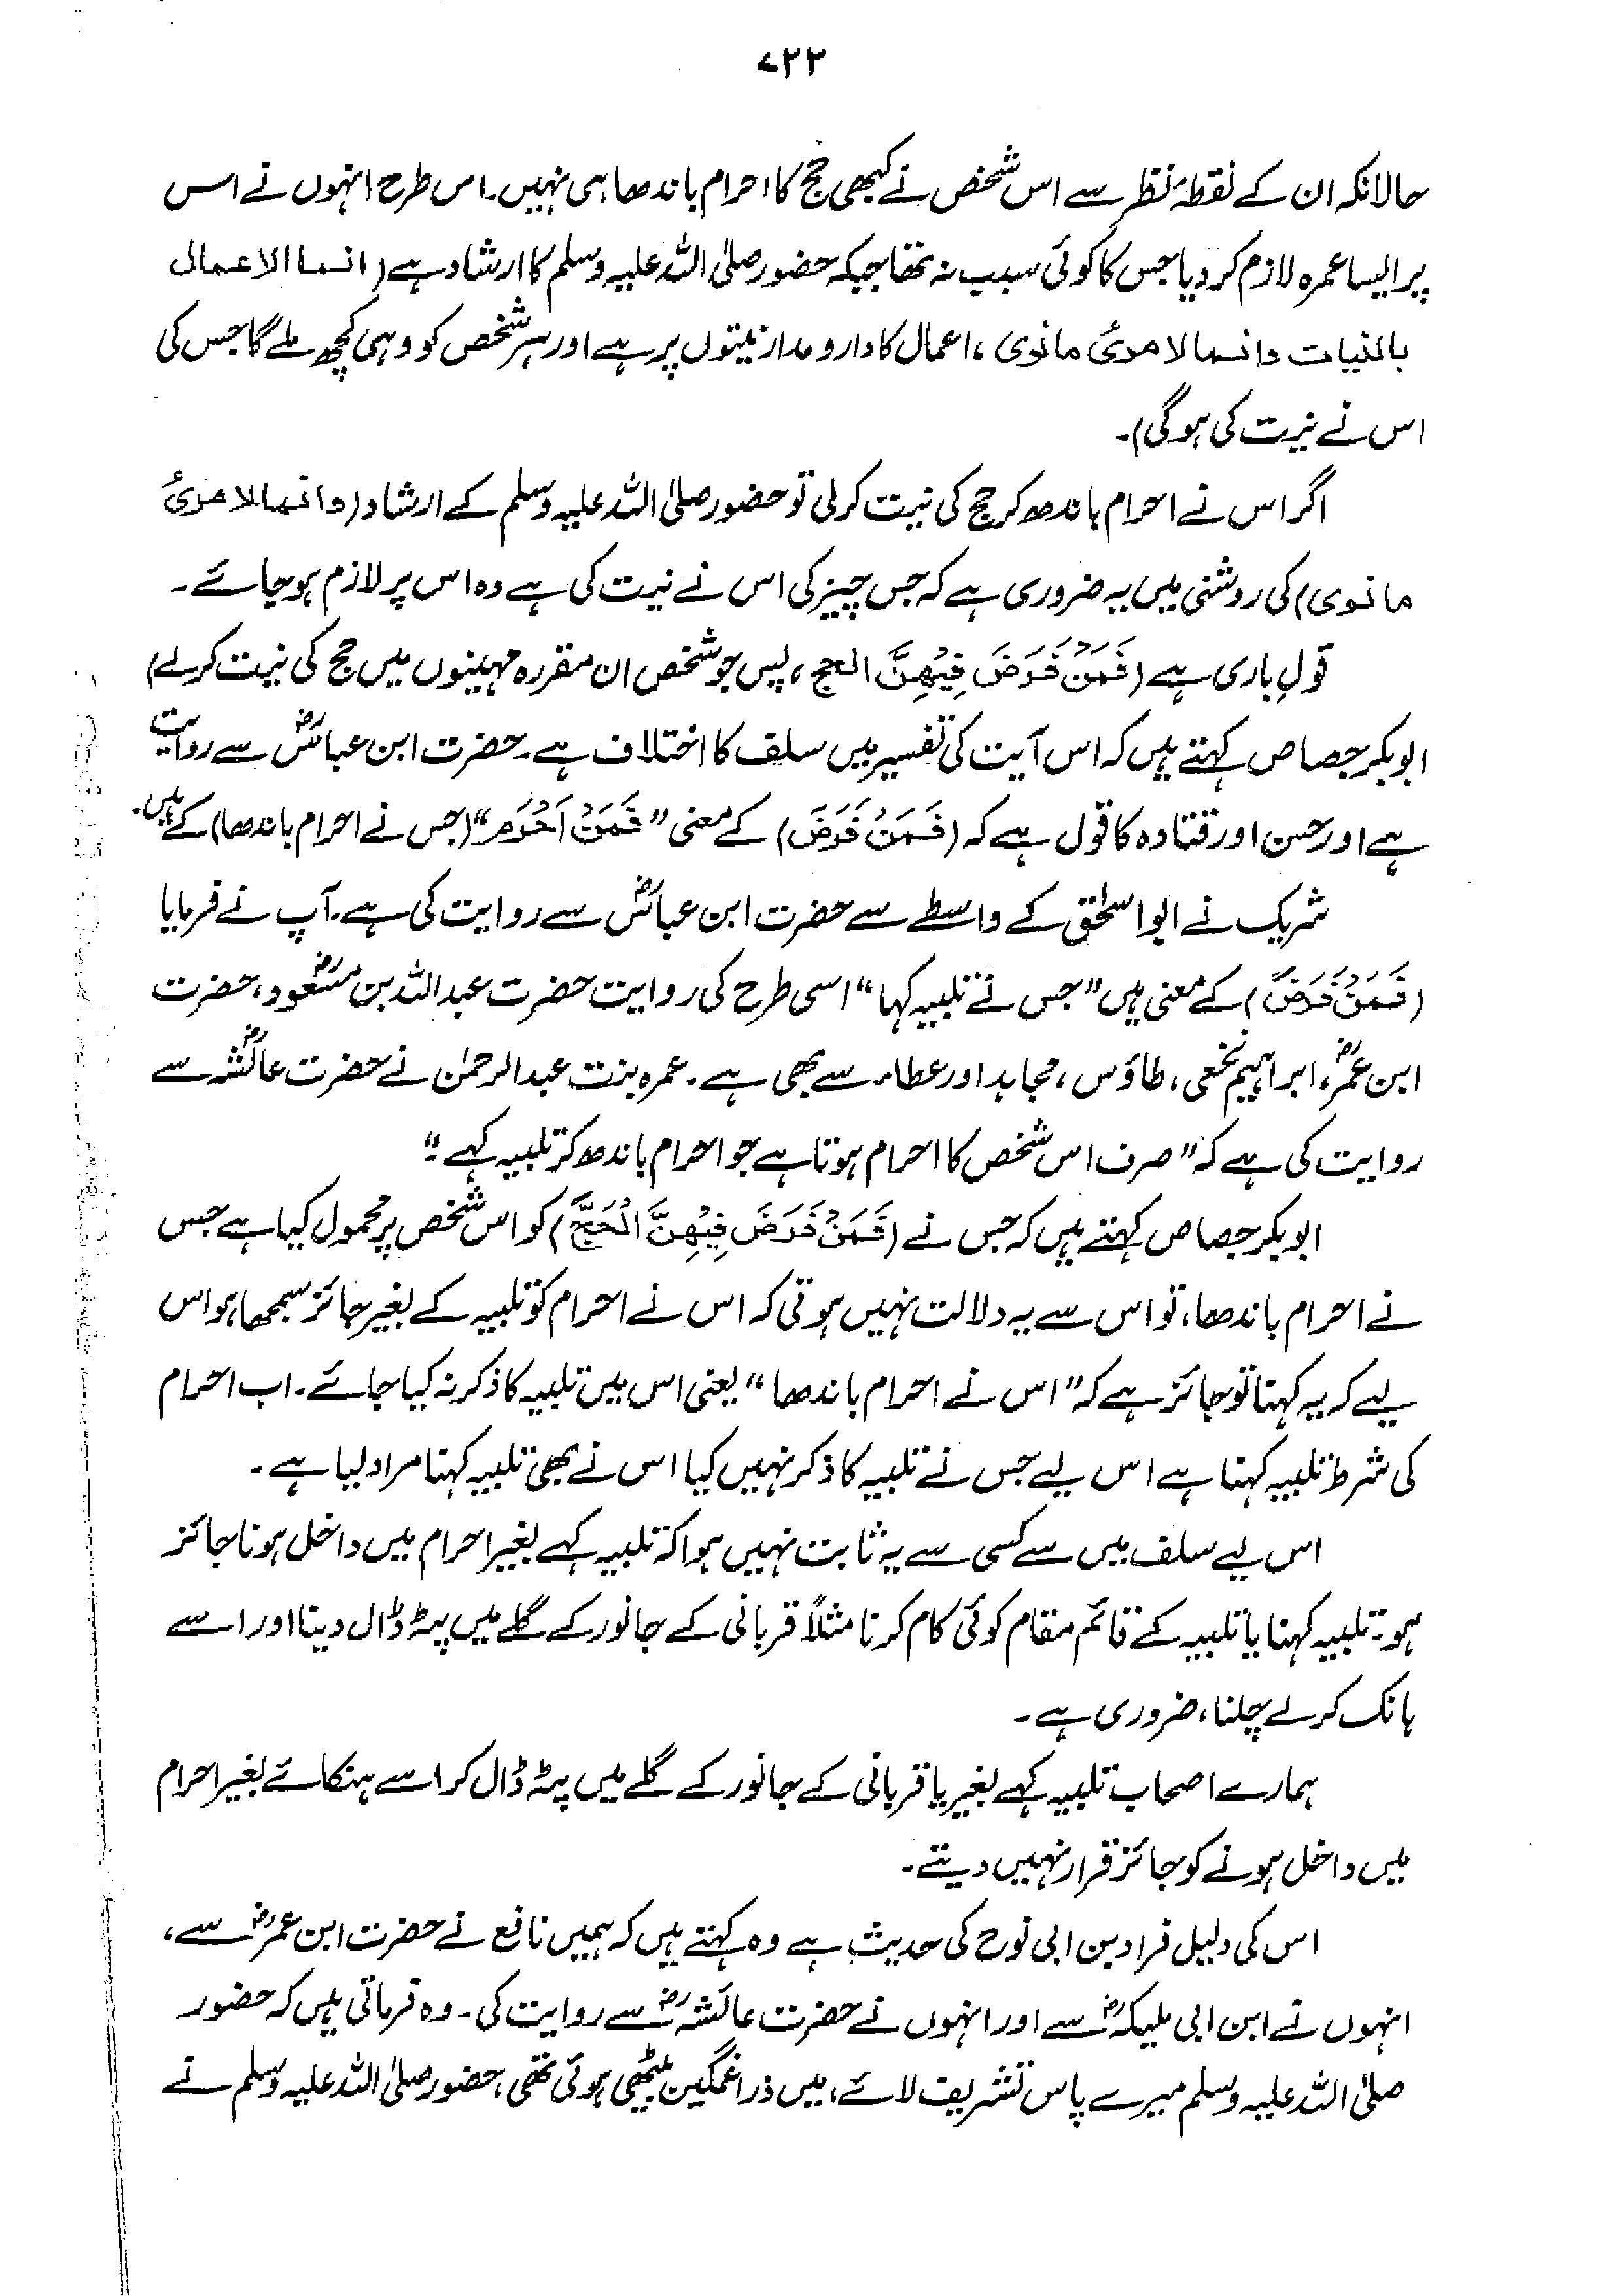 ۷۲۲
حالانکہ ان کے نقطۂ نظر سے اس شخص نے کبھی حج کا احرام باندھا ہی نہیں۔ اس طرح انہوں نے اس
پر ایسا عمرہ لازم کر دیا جس کا کوئی سبب نہ تھا جبکہ حضور صلی اللہ علیہ وسلم کا ارشاد ہے (انما الاعمال
بالنیات وانما لامرئ مانوی، اعمال کا دارومدار نیتوں پر ہے اور ہر شخص کو وہی کچھ ملے گا جس کی
اس نے نیت کی ہوگی)۔
اگر اس نے احرام باندھ کر حج کی نیت کرلی تو حضور صلی اللہ علیہ وسلم کے ارشاد (وانما لامرئ
مانوی) کی روشنی میں یہ ضروری ہے کہ جس چیز کی اس نے نیت کی ہے وہ اس پر لازم ہو جائے۔
قولِ باری ہے (فَمَنْ فَرَضَ فِيْهِنَّ الحج، پس جو شخص ان مقررہ مہینوں میں حج کی نیت کرلے)
ابوبکر جصاص کہتے ہیں کہ اس آیت کی تفسیر میں سلف کا اختلاف ہے۔ حضرت ابن عباسؓ سے روایت
ہے اور حسن اور قتادہ کا قول ہے کہ (فَمَنْ فَرَضَ) کے معنی "فَمَنْ اَحْرَمَ" (جس نے احرام باندھا) کے ہیں۔
شریک نے ابواسحٰق کے واسطے سے حضرت ابن عباسؓ سے روایت کی ہے۔ آپ نے فرمایا
(فَمَنْ فَرَضَ) کے معنی ہیں "جس نے تلبیہ کہا" اسی طرح کی روایت حضرت عبداللہ بن مسعودؓ، حضرت
ابن عمرؓ، ابراہیم نخعی، طاؤس، مجاہد اور عطاء سے بھی ہے۔ عمرہ بنت عبدالرحمٰن نے حضرت عائشہؓ سے
روایت کی ہے کہ "صرف اس شخص کا احرام ہوتا ہے جو احرام باندھ کر تلبیہ کہے۔"
ابوبکر جصاص کہتے ہیں کہ جس نے (فَمَنْ فَرَضَ فِيْهِنَّ الْحَجَّ) کو اس شخص پر محمول کیا ہے جس
نے احرام باندھا، تو اس سے یہ دلالت نہیں ہوتی کہ اس نے احرام کو تلبیہ کے بغیر جائز سمجھا ہو اس
لیے کہ یہ کہنا تو جائز ہے کہ "اس نے احرام باندھا" یعنی اس میں تلبیہ کا ذکر نہ کیا جائے۔ اب احرام
کی شرط تلبیہ کہنا ہے اس لیے جس نے تلبیہ کا ذکر نہیں کیا اس نے بھی تلبیہ کہنا مراد لیا ہے۔
اس لیے سلف میں سے کسی سے یہ ثابت نہیں ہوا کہ تلبیہ کہے بغیر احرام میں داخل ہونا جائز
ہو۔ تلبیہ کہنا یا تلبیہ کے قائم مقام کوئی کام کرنا مثلاً قربانی کے جانور کے گلے میں پٹہ ڈال دینا اور اسے
ہانک کر لے چلنا، ضروری ہے۔
ہمارے اصحاب تلبیہ کہے بغیر یا قربانی کے جانور کے گلے میں پٹہ ڈال کر اسے ہنکائے بغیر احرام
میں داخل ہونے کو جائز قرار نہیں دیتے۔
اس کی دلیل قراد بن ابی نوح کی حدیث ہے وہ کہتے ہیں کہ ہمیں نافع نے حضرت ابن عمرؓ سے،
انہوں نے ابن ابی ملیکہؓ سے اور انہوں نے حضرت عائشہؓ سے روایت کی۔ وہ فرماتی ہیں کہ حضور
صلی اللہ علیہ وسلم میرے پاس تشریف لائے، میں ذرا غمگین بیٹھی ہوئی تھی، حضور صلی اللہ علیہ وسلم نے